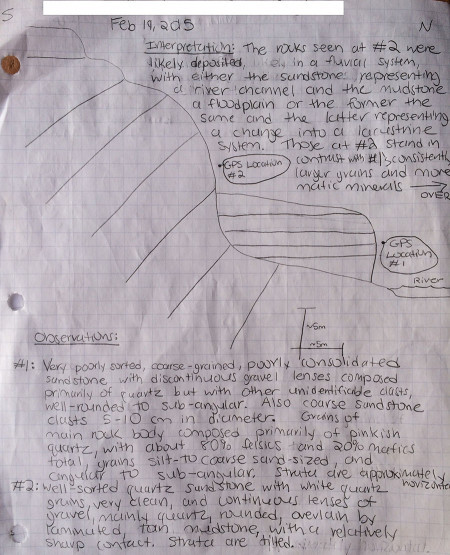 S
Feb 19, 2015
N
Interpretation: The rocks seen at #2 were
likely deposited, in a fluvial system,
with either the sandstone representing
a river channel and the mudstone
a floodplain or the former the
same and the latter representing
a change into a lacustrine
system. Those at #2 stand in
contrast with #1's consistently
larger grains and more
mafic minerals →
OVER
GPS Location
#2
GPS
Location
#1
River
~5m
~5m
Observations:
#1: Very poorly sorted, coarse-grained, poorly consolidated
sandstone with discontinuous gravel lenses composed
primarily of quartz but with other unidentifiable clasts,
well-rounded to sub-angular. Also coarse sandstone
clasts 5-10 cm in diameter. Grains of
main rock body composed primarily of pinkish
quartz, with about 80% felsics and 20% mafics
total, grains silt- to coarse sand-sized, and
angular to sub-angular. Strata are approximately
horizontal
#2: Well-sorted quartz sandstone with white quartz
grains, very clean, and continuous lenses of
gravel, mainly quartz, rounded, overlain by
laminated, tan mudstone, with a relatively
sharp contact. Strata are tilted.